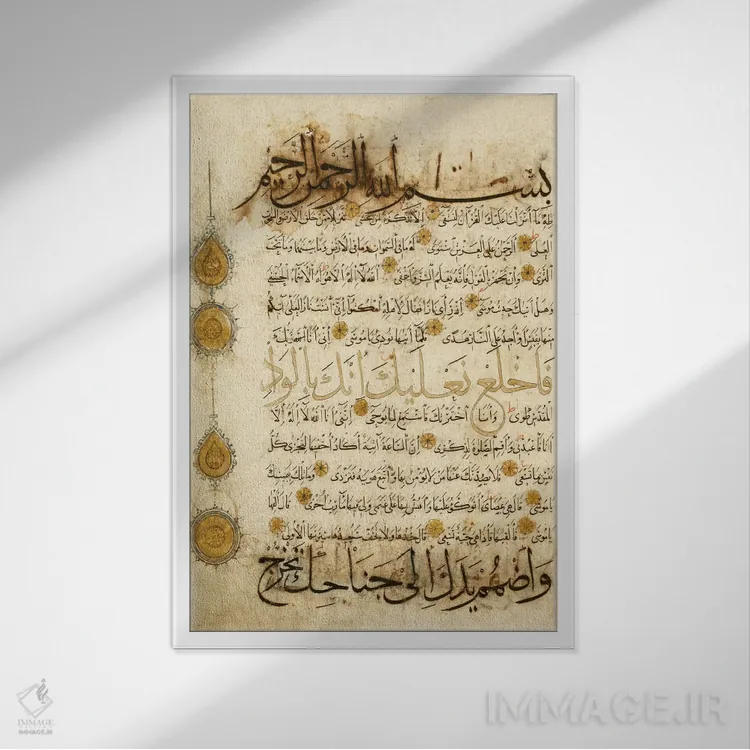 بسم الله الرحمن الرحيم
طه ما أنزلنا عليك القرآن لتشقى إلا تذكرة لمن يخشى تنزيلا ممن خلق الأرض والسموات
العلى الرحمن على العرش استوى له ما في السموات وما في الأرض وما بينهما وما تحت
الثرى وإن تجهر بالقول فإنه يعلم السر وأخفى الله لا إله إلا هو له الأسماء الحسنى
وهل أتيك حديث موسى إذ رأى نارا فقال لأهله امكثوا إني آنست نارا لعلي آتيكم
منها بقبس أو أجد على النار هدى فلما أتيها نودي يا موسى إني أنا ربك
فاخلع نعليك إنك بالواد
المقدس طوى وأنا اخترتك فاستمع لما يوحى إنني أنا الله لا إله إلا
أنا فاعبدني وأقم الصلوة لذكري إن الساعة آتية أكاد أخفيها لتجزى كل
نفس بما تسعى فلا يصدنك عنها من لا يؤمن بها واتبع هويه فتردى وما تلك بيمينك
يا موسى قال هي عصاي أتوكؤ عليها وأهش بها على غنمي ولي فيها مآرب أخرى قال ألقها
يا موسى فألقيها فإذا هي حية تسعى قال خذها ولا تخف سنعيدها سيرتها الأولى
واضمم يدك إلى جناحك تخرج
IMMAGE
IMMAGE.IR
IMMAGE.IR